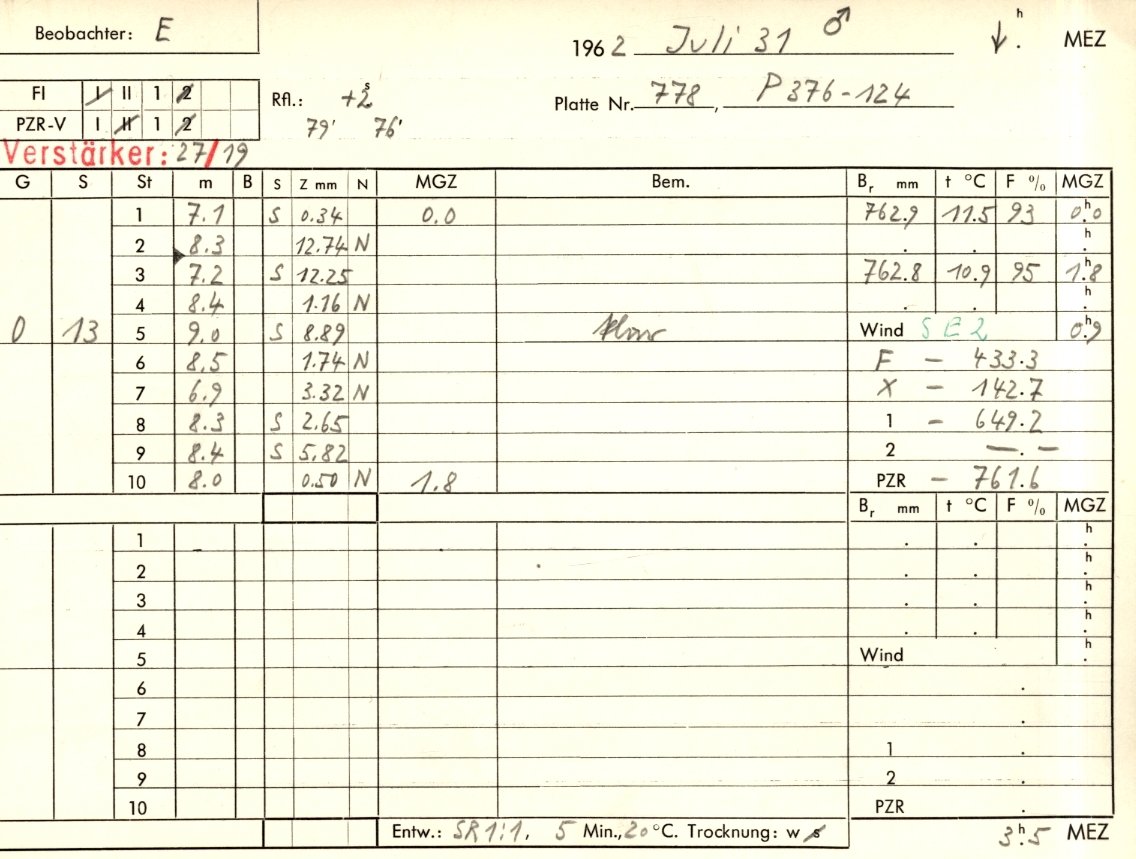 Beobachter: E
1962 Juli 31 ♂ ↓ h . MEZ
FI I II 1 2
PZR-V I II 1 2
Rfl.: +2s
79' 76'
Platte Nr. 778, P 376-124
Verstärker: 27/19
G S St m B S Z mm N MGZ Bem. Br mm t °C F % MGZ
1 7.1 S 0.34 0.0 762.9 11.5 93 0h.0
2 8.3 12.74 N . . h.
3 7.2 S 12.25 762.8 10.9 95 1h.8
4 8.4 1.16 N . . h.
0 13 5 9.0 S 8.89 Wind SE2 0h.9
6 8.5 1.74 N F – 433.3
7 6.9 3.32 N X – 142.7
8 8.3 S 2.65 1 – 649.2
9 8.4 S 5.82 2 —.–
10 8.0 0.50 N 1.8 PZR – 761.6
Br mm t °C F % MGZ
1 . . h.
2 . . h.
3 . . h.
4 . . h.
5 Wind h.
6 .
7 .
8 1 .
9 2 .
10 PZR .
Entw.: SR 1:1, 5 Min., 20 °C. Trocknung: w s 3h.5 MEZ